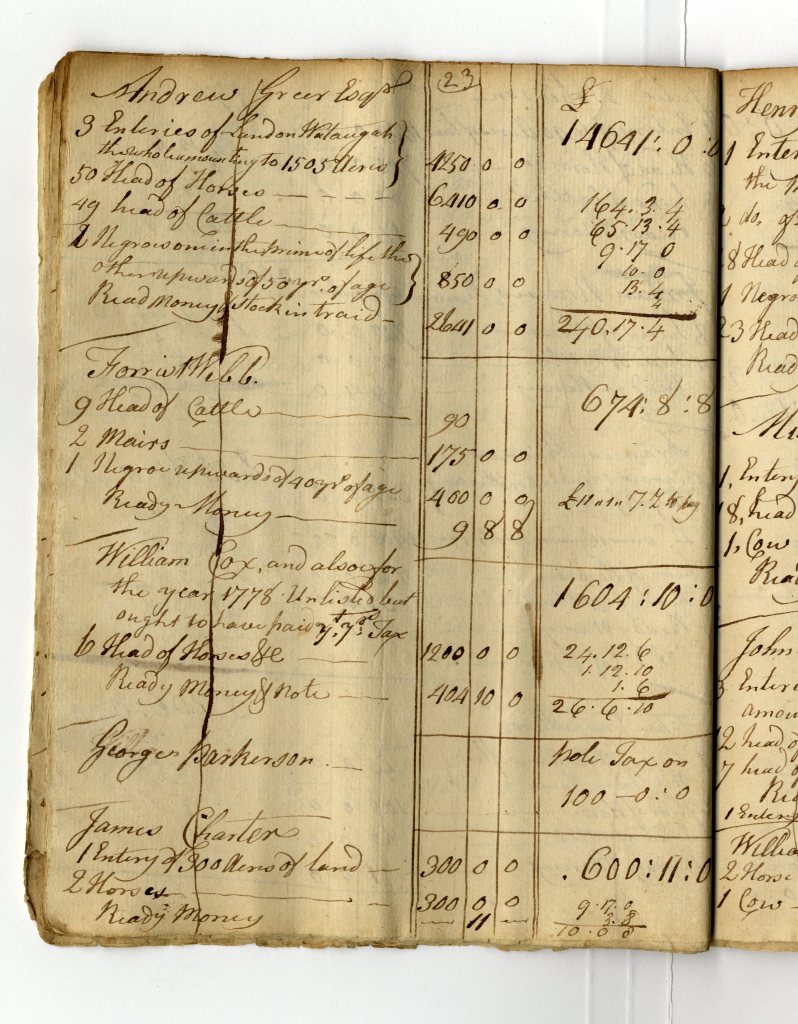 23
Andrew Greer Esqr
£
14641:0:0
3 Enteries of Land on Wataugah
the whole amounting to 1505 Acres 4250 0 0
50 Head of Horses 6410 0 0
164.3.4
49 head of Cattle 490 0 0
65.13.4
9.17 0
2 Negros one in the prime of life the
other upwards of 50 yrs. of age 850 0 0
10.0
13.4
4
Read Money & Stock in traid 2641 0 0
240.17.4
Webb.
674:8:8
9 Head of Cattle 90
2 Mairs 175 0 0
1 Negroe upwards of 40 yrs. of age 400 0 0
Ready Money 9 8 8
William Cox, and also for
the year 1778 Unlisted but
1604:10:0
ought to have paid Tax
6 Head of Horses &c 1200 0 0
24.12.6
1.12.10
Ready Money & Note 404 10 0
1.6
26.6.10
George Parkerson
pole Tax on
100-0:0
James Charter
1 Entery of 300 Acres of land 300 0 0
.600:11:0
2 Horses 300 0 0
9.17.0
Ready Money 11
3.8
10.0 0
Henr
1 Enter
the
do. of
8 Head
1 Negro
23 Head
Read
1, Entery
18, head
1, Cow
Rea
John
3 Enteri
amou
12 head of
7 head of
Re
1 Entery
Willia
2 Horse
1 Cow